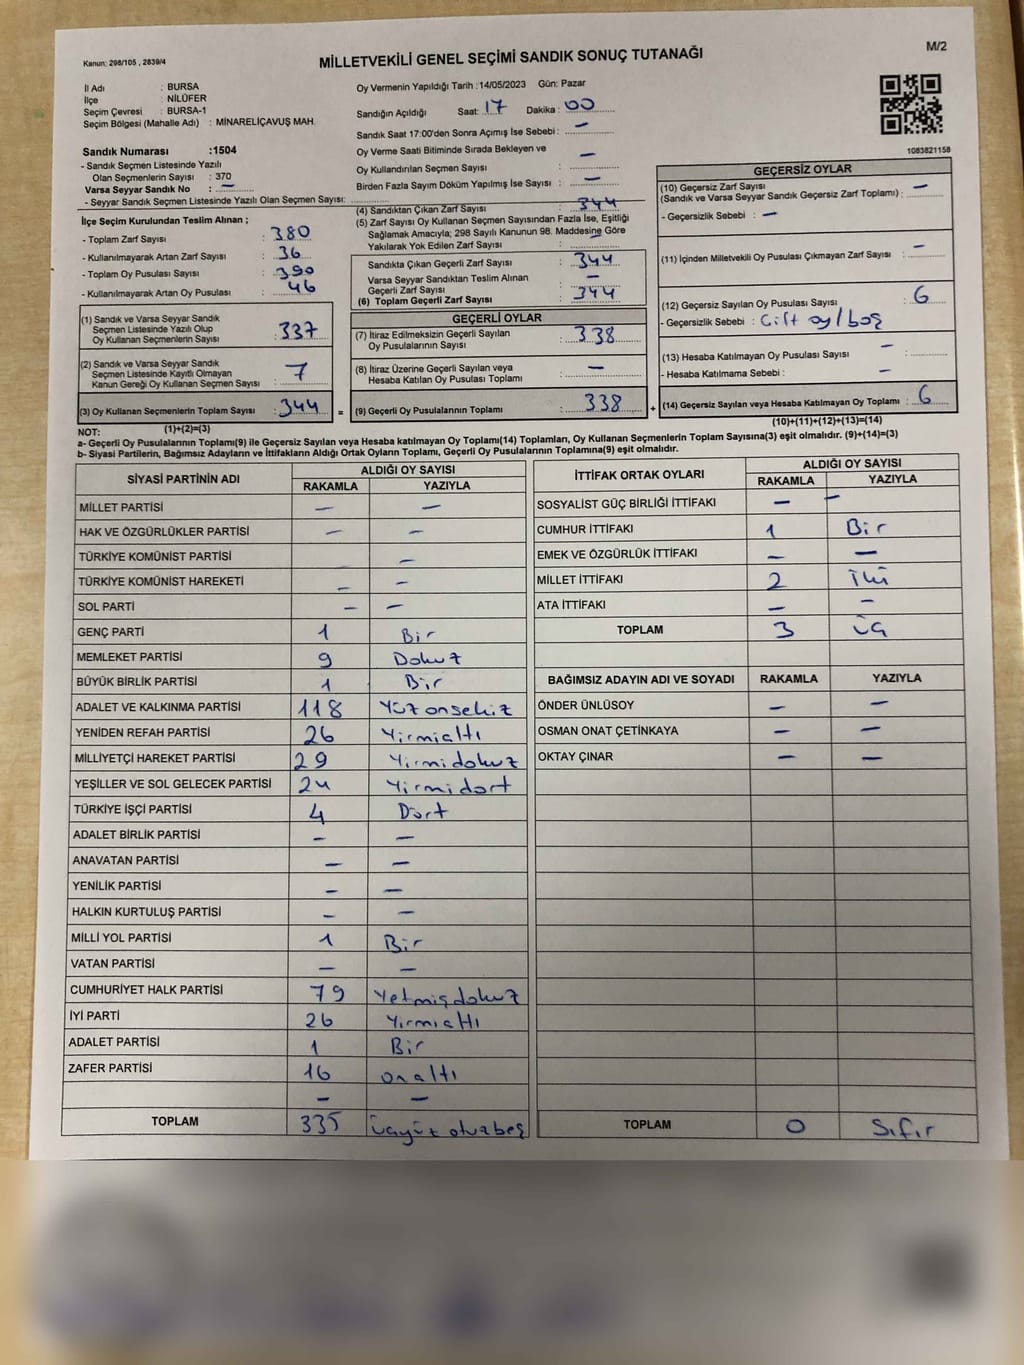 M/2
Kanun: 298/105 , 2839/4
MİLLETVEKİLİ GENEL SEÇİMİ SANDIK SONUÇ TUTANAĞI
İl Adı : BURSA
İlçe : NİLÜFER
Seçim Çevresi : BURSA-1
Seçim Bölgesi (Mahalle Adı) : MİNARELİÇAVUŞ MAH.
Sandık Numarası :1504
- Sandık Seçmen Listesinde Yazılı
Olan Seçmenlerin Sayısı : 370
Varsa Seyyar Sandık No : —
- Seyyar Sandık Seçmen Listesinde Yazılı Olan Seçmen Sayısı:
İlçe Seçim Kurulundan Teslim Alınan ;
- Toplam Zarf Sayısı : 380
- Kullanılmayarak Artan Zarf Sayısı : 36
- Toplam Oy Pusulası Sayısı : 390
- Kullanılmayarak Artan Oy Pusulası : 46
(1) Sandık ve Varsa Seyyar Sandık
Seçmen Listesinde Yazılı Olup
Oy Kullanan Seçmenlerin Sayısı : 337
(2) Sandık ve Varsa Seyyar Sandık
Seçmen Listesinde Kayıtlı Olmayan
Kanun Gereği Oy Kullanan Seçmen Sayısı : 7
(3) Oy Kullanan Seçmenlerin Toplam Sayısı : 344 =
Oy Vermenin Yapıldığı Tarih :14/05/2023 Gün: Pazar
Sandığın Açıldığı Saat: 17 Dakika : 00
Sandık Saat 17:00'den Sonra Açımış İse Sebebi : —
Oy Verme Saati Bitiminde Sırada Bekleyen ve
Oy Kullandırılan Seçmen Sayısı : —
Birden Fazla Sayım Döküm Yapılmış İse Sayısı : —
(4) Sandıktan Çıkan Zarf Sayısı : 344
(5) Zarf Sayısı Oy Kullanan Seçmen Sayısından Fazla İse, Eşitliği
Sağlamak Amacıyla; 298 Sayılı Kanunun 98. Maddesine Göre
Yakılarak Yok Edilen Zarf Sayısı : —
Sandıkta Çıkan Geçerli Zarf Sayısı : 344
Varsa Seyyar Sandıktan Teslim Alınan
Geçerli Zarf Sayısı : —
(6) Toplam Geçerli Zarf Sayısı : 344
GEÇERLİ OYLAR
(7) İtiraz Edilmeksizin Geçerli Sayılan
Oy Pusulalarının Sayısı : 338
(8) İtiraz Üzerine Geçerli Sayılan veya
Hesaba Katılan Oy Pusulası Toplamı : —
(9) Geçerli Oy Pusulalarının Toplamı : 338 +
1083821158
GEÇERSİZ OYLAR
(10) Geçersiz Zarf Sayısı —
(Sandık ve Varsa Seyyar Sandık Geçersiz Zarf Toplamı) :
- Geçersizlik Sebebi : —
(11) İçinden Milletvekili Oy Pusulası Çıkmayan Zarf Sayısı : —
(12) Geçersiz Sayılan Oy Pusulası Sayısı : 6
- Geçersizlik Sebebi : Çift oy/boş
(13) Hesaba Katılmayan Oy Pusulası Sayısı : —
- Hesaba Katılmama Sebebi : —
(14) Geçersiz Sayılan veya Hesaba Katılmayan Oy Toplamı : 6
NOT: (1)+(2)=(3) (10)+(11)+(12)+(13)=(14)
a- Geçerli Oy Pusulalarının Toplamı(9) ile Geçersiz Sayılan veya Hesaba katılmayan Oy Toplamı(14) Toplamları, Oy Kullanan Seçmenlerin Toplam Sayısına(3) eşit olmalıdır. (9)+(14)=(3)
b- Siyasi Partilerin, Bağımsız Adayların ve İttifakların Aldığı Ortak Oyların Toplamı, Geçerli Oy Pusulalarının Toplamına(9) eşit olmalıdır.
SİYASİ PARTİNİN ADI ALDIĞI OY SAYISI
RAKAMLA YAZIYLA
MİLLET PARTİSİ — —
HAK VE ÖZGÜRLÜKLER PARTİSİ — —
TÜRKİYE KOMÜNİST PARTİSİ —
TÜRKİYE KOMÜNİST HAREKETİ — —
SOL PARTİ — —
GENÇ PARTİ 1 Bir
MEMLEKET PARTİSİ 9 Dokuz
BÜYÜK BİRLİK PARTİSİ 1 Bir
ADALET VE KALKINMA PARTİSİ 118 Yüzonsekiz
YENİDEN REFAH PARTİSİ 26 Yirmialtı
MİLLİYETÇİ HAREKET PARTİSİ 29 Yirmidokuz
YEŞİLLER VE SOL GELECEK PARTİSİ 24 Yirmidört
TÜRKİYE İŞÇİ PARTİSİ 4 Dört
ADALET BİRLİK PARTİSİ — —
ANAVATAN PARTİSİ — —
YENİLİK PARTİSİ — —
HALKIN KURTULUŞ PARTİSİ — —
MİLLİ YOL PARTİSİ 1 Bir
VATAN PARTİSİ — —
CUMHURİYET HALK PARTİSİ 79 Yetmişdokuz
İYİ PARTİ 26 Yirmialtı
ADALET PARTİSİ 1 Bir
ZAFER PARTİSİ 16 onaltı
— —
TOPLAM 335 üçyüz otuzbeş
İTTİFAK ORTAK OYLARI ALDIĞI OY SAYISI
RAKAMLA YAZIYLA
SOSYALİST GÜÇ BİRLİĞİ İTTİFAKI — —
CUMHUR İTTİFAKI 1 Bir
EMEK VE ÖZGÜRLÜK İTTİFAKI — —
MİLLET İTTİFAKI 2 İki
ATA İTTİFAKI — —
TOPLAM 3 üç
BAĞIMSIZ ADAYIN ADI VE SOYADI RAKAMLA YAZIYLA
ÖNDER ÜNLÜSOY — —
OSMAN ONAT ÇETİNKAYA — —
OKTAY ÇINAR — —
TOPLAM 0 Sıfır